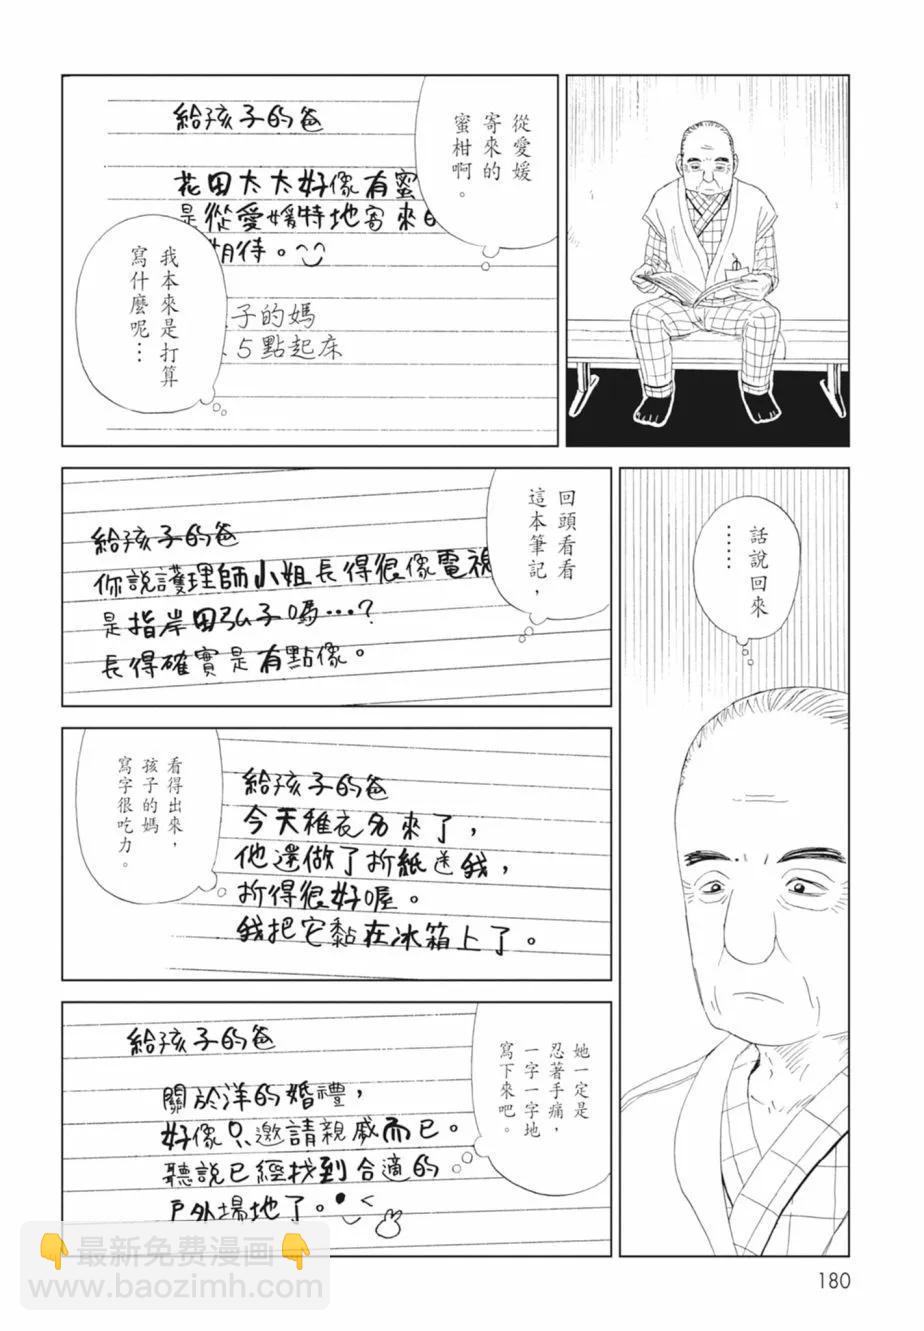 從愛媛
寄來的
蜜柑啊。
給孩子的爸
花田太太好像有蜜
是從愛媛特地寄來的
期待。
子的媽
5點起床
我本來是打算
寫什麼呢…
話說回來
……
回頭看看
這本筆記，
給孩子的爸
你說護理師小姐長得很像電視
是指岸田弘子嗎…？
長得確實是有點像。
給孩子的爸
今天稚衣另來了，
他還做了折紙送我，
折得很好喔。
我把它黏在冰箱上了。
看得出來，
孩子的媽
寫字很吃力。
她一定是
忍著手痛，
一字一字地
寫下來吧。
給孩子的爸
關於洋的婚禮，
好像只邀請親戚而已。
聽說已經找到合適的
戶外場地了。
最新免費漫画
www.baozimh.com
180